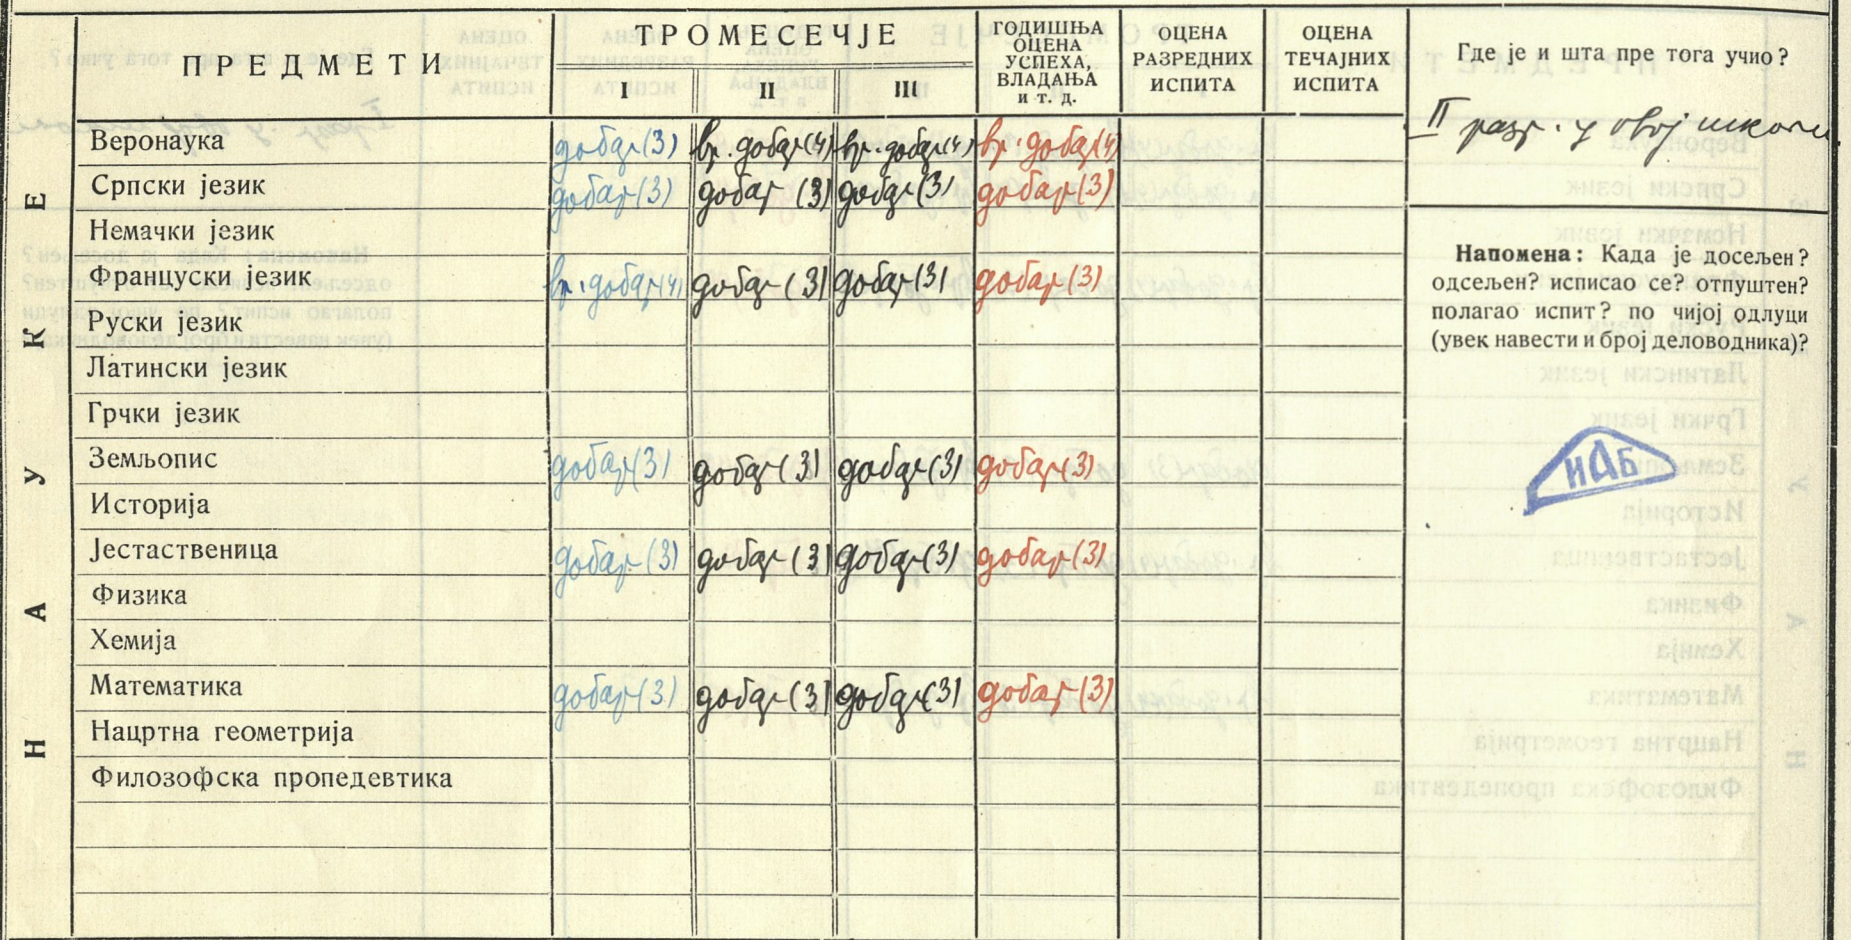 ПРЕДМЕТИ
ТРОМЕСЕЧЈЕ
I II III
ГОДИШЊА ОЦЕНА УСПЕХА, ВЛАДАЊА и т. д.
ОЦЕНА РАЗРЕДНИХ ИСПИТА
ОЦЕНА ТЕЧАЈНИХ ИСПИТА
Где је и шта пре тога учио?
II разр. у овој школи
НАУКЕ
Веронаука добар (3) вр. добар (4) вр. добар (4) вр. добар (4)
Српски језик добар (3) добар (3) добар (3) добар (3)
Немачки језик
Француски језик вр. добар (4) добар (3) добар (3) добар (3)
Руски језик
Латински језик
Грчки језик
Земљопис добар (3) добар (3) добар (3) добар (3)
Историја
Јестаственица добар (3) добар (3) добар (3) добар (3)
Физика
Хемија
Математика добар (3) добар (3) добар (3) добар (3)
Нацртна геометрија
Филозофска пропедевтика
Напомена: Када је досељен?
одсељен? исписао се? отпуштен?
полагао испит? по чијој одлуци
(увек навести и број деловодника)?
ИАБ